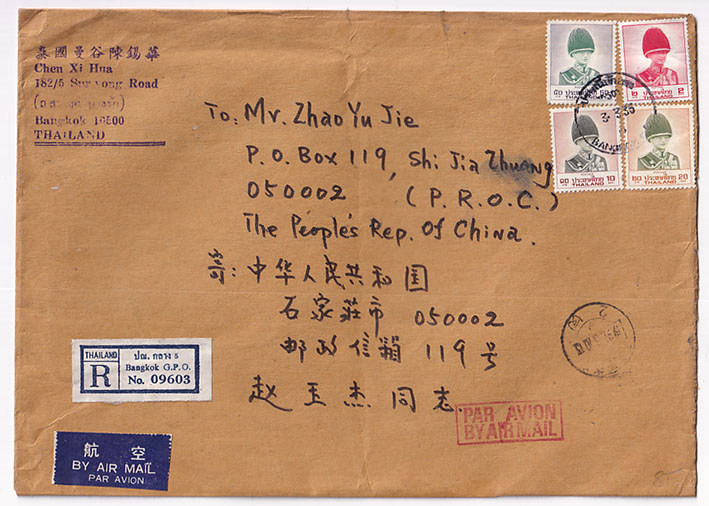 泰國曼谷陳錫華
Chen Xi Hua
182/5 Road
Bangkok 10500
THAILAND
To: Mr. Zhao Yu Jie
P.O. Box 119, Shi Jia Zhuang
050002 (P.R.O.C.)
The People's Rep. Of China.
寄: 中华人民共和国
石家莊市 050002
邮政信箱 119 号
赵玉杰同志
๕๐ ประเทศไทย 50
THAILAND
๒ ประเทศไทย 2
THAILAND
๑๐ ประเทศไทย 10
THAILAND
๒๐ ประเทศไทย 20
THAILAND
THAILAND
R
ปณ. กลาง 5
Bangkok G.P.O.
No. 09603
航空
BY AIR MAIL
PAR AVION
PAR AVION
BY AIR MAIL